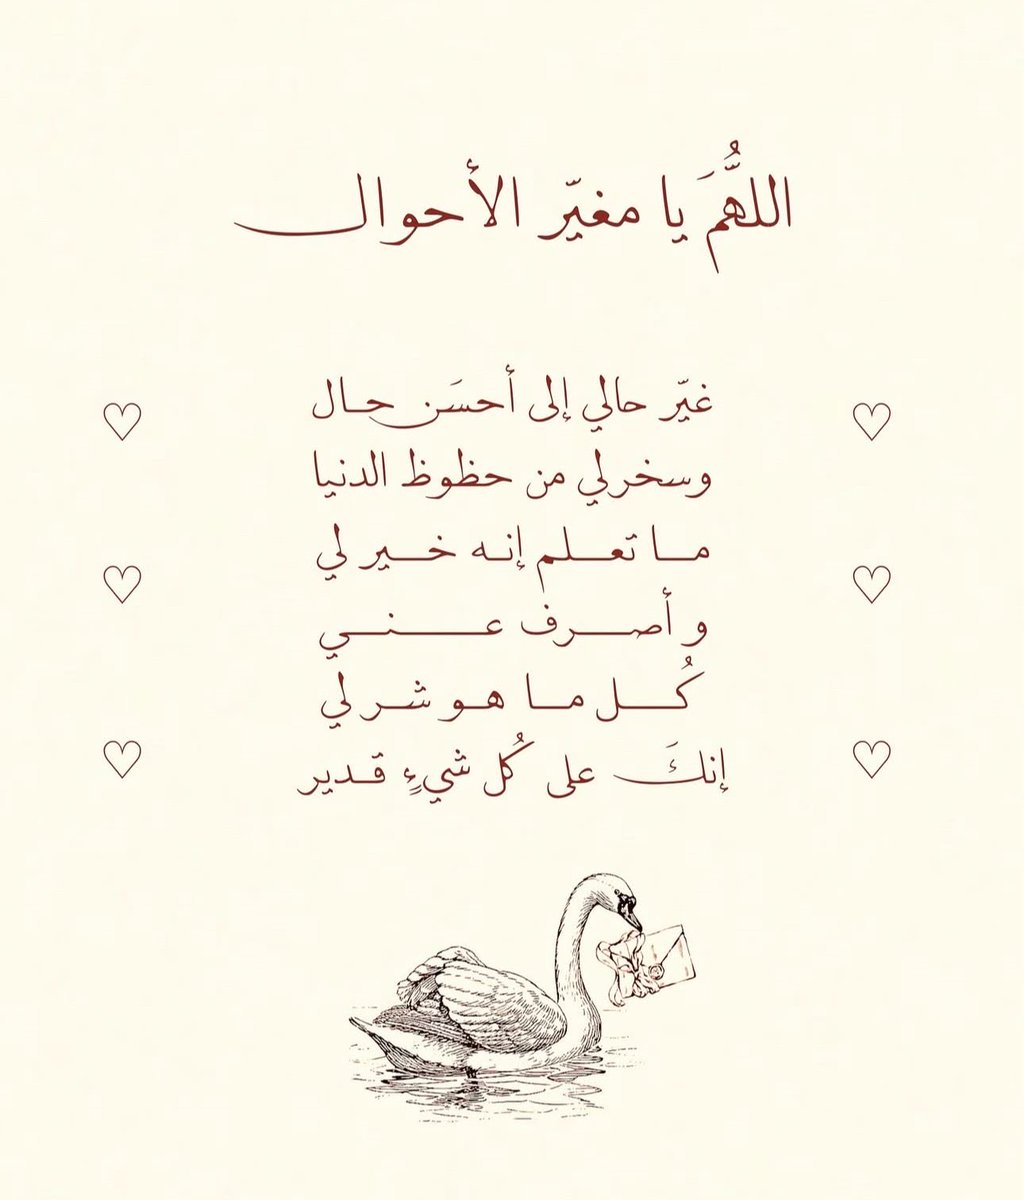 اللهُّمَ يا مغيّر الأحوال
غيّر حالي إلى أحسَن حال
وسخرلي من حظوظ الدنيا
ما تعلم إنه خير لي
و أصرف عني
كُل ما هو شر لي
إنكَ على كُل شيءٍ قدير